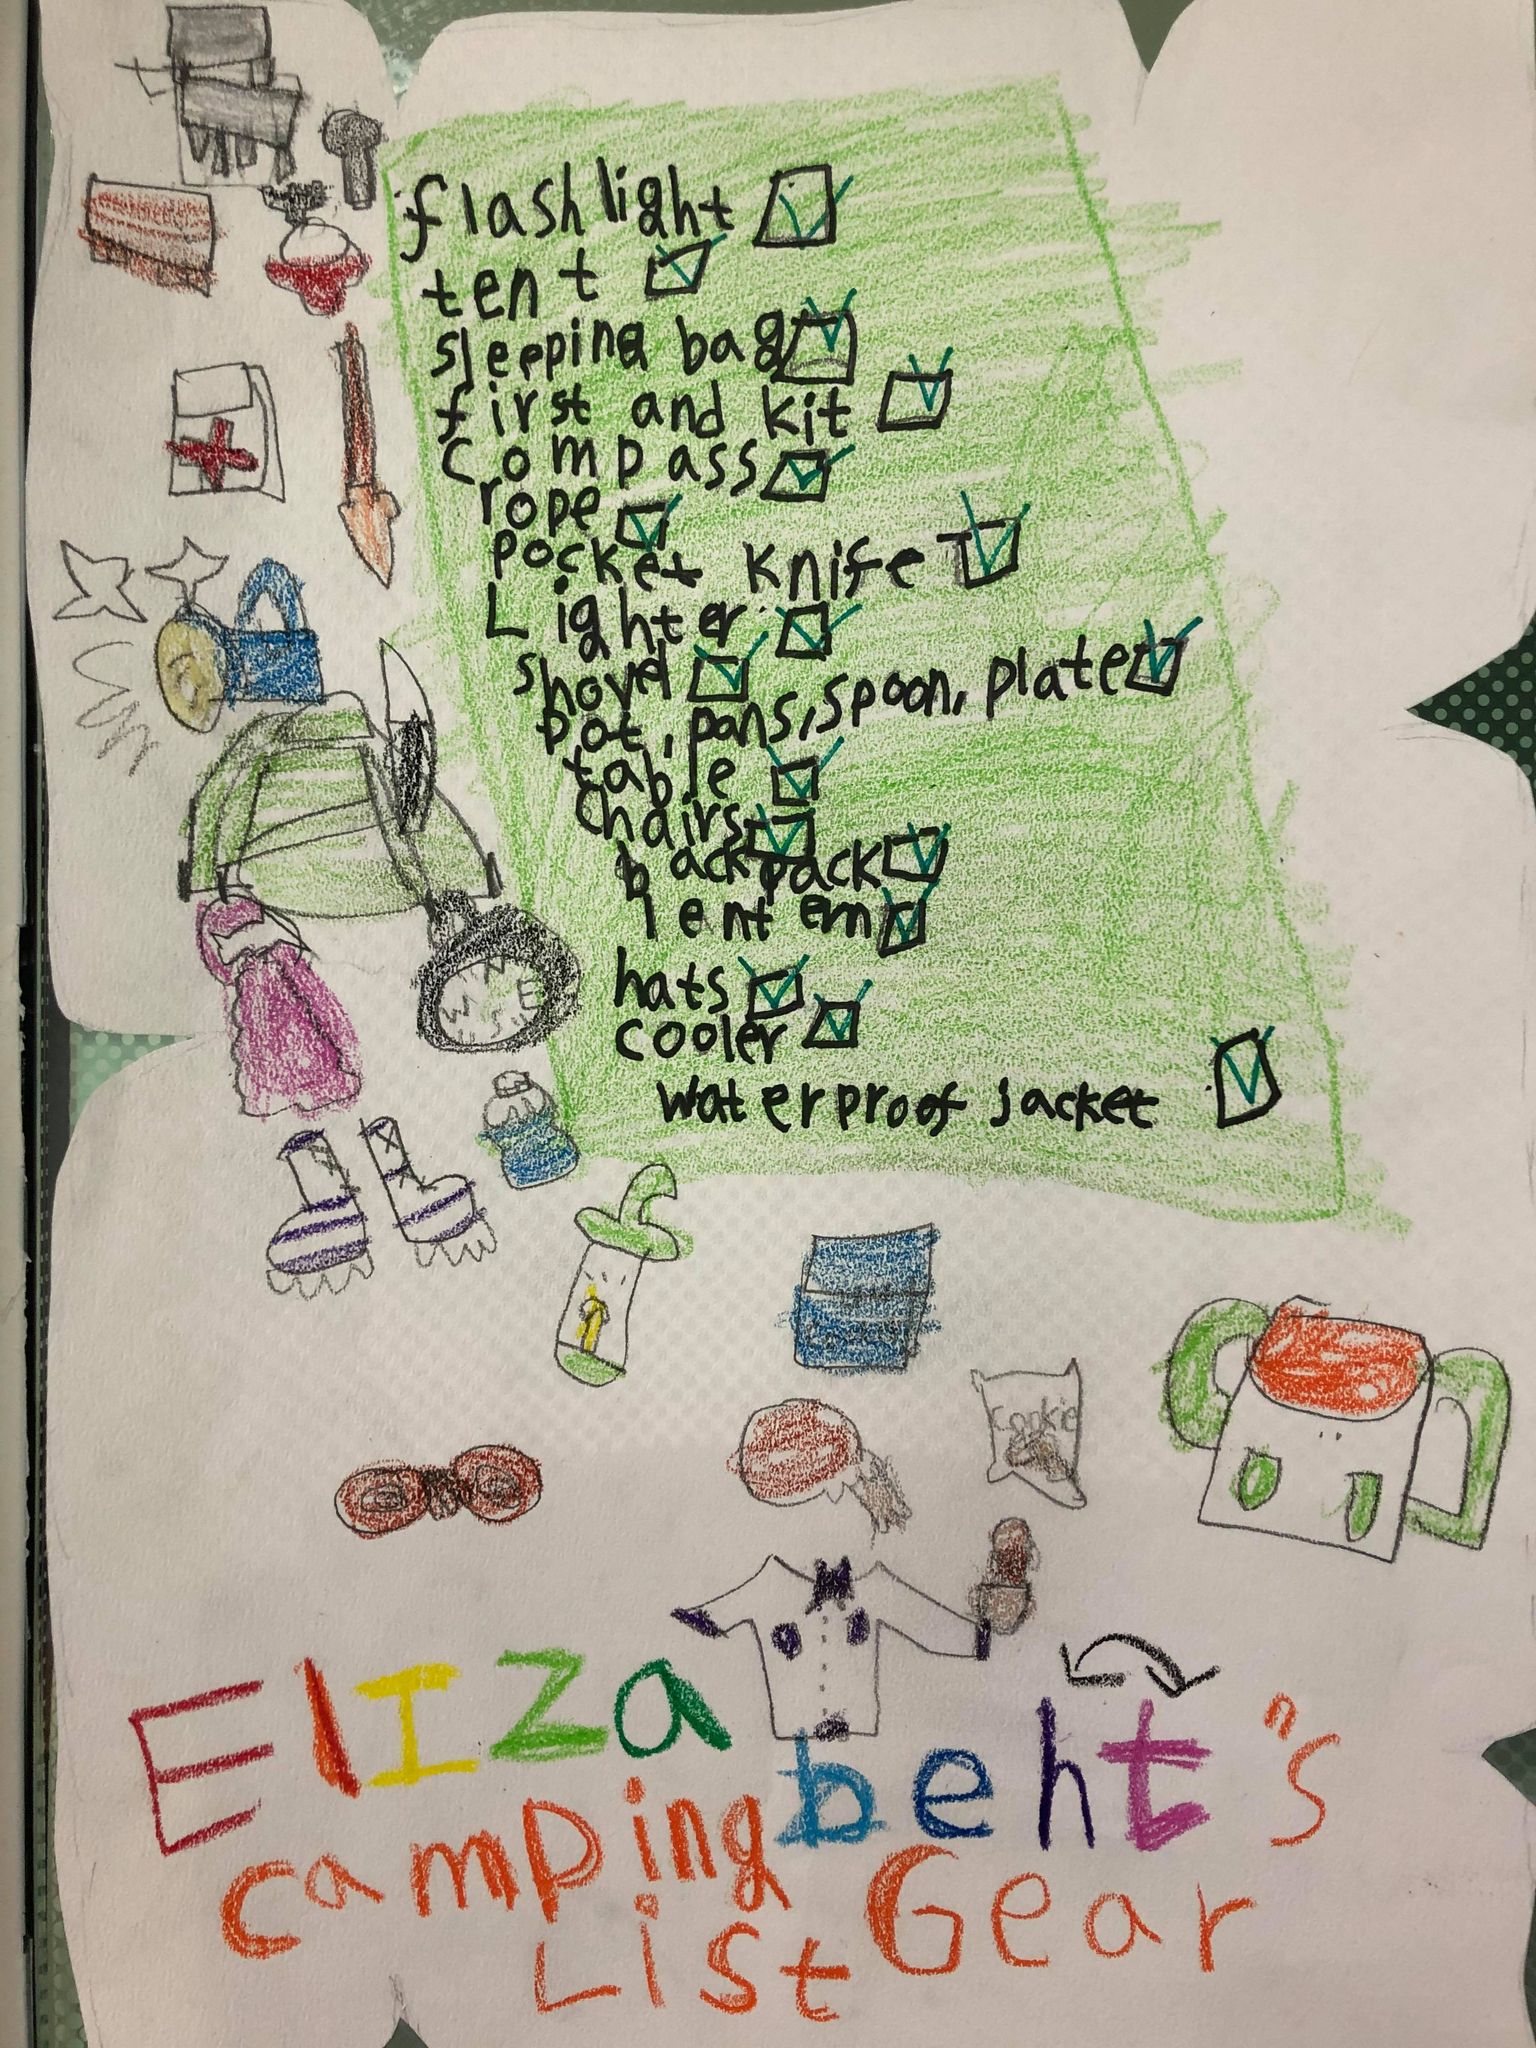 flashlight
tent
sleeping bag
first and kit
compass
rope
pocket knife
Lighter
shovel
pot, pans, spoon, plate
table
chairs
backpack
lentern
hats
cooler
waterproof jacket
N
W E
S
Cookie
Elizabeht"s
camping Gear
List